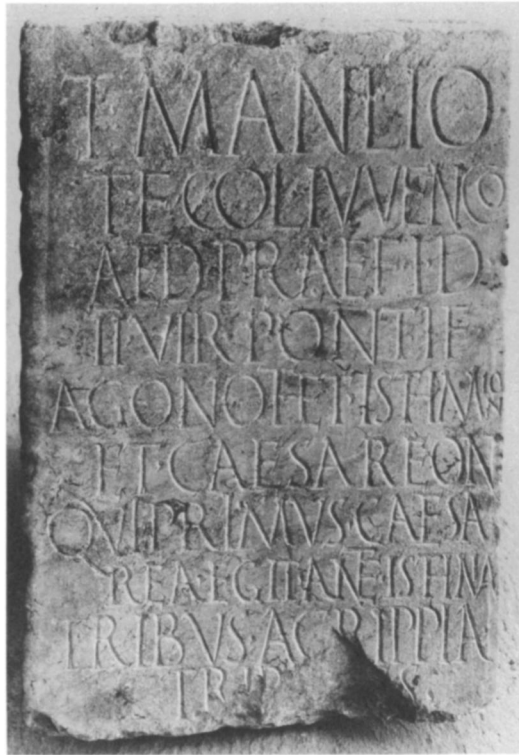 T MANLIO
T·F·COL·IVVENCO
AED·PRAEF·I·D
IIVIR·PONTIF
AGONOTHET·ISTHMION
ET·CAESAREON
QVI·PRIMVS·CAESA
REA·EGIT·ANTE·ISTHMIA
TRIBVS·AGRIPPIA